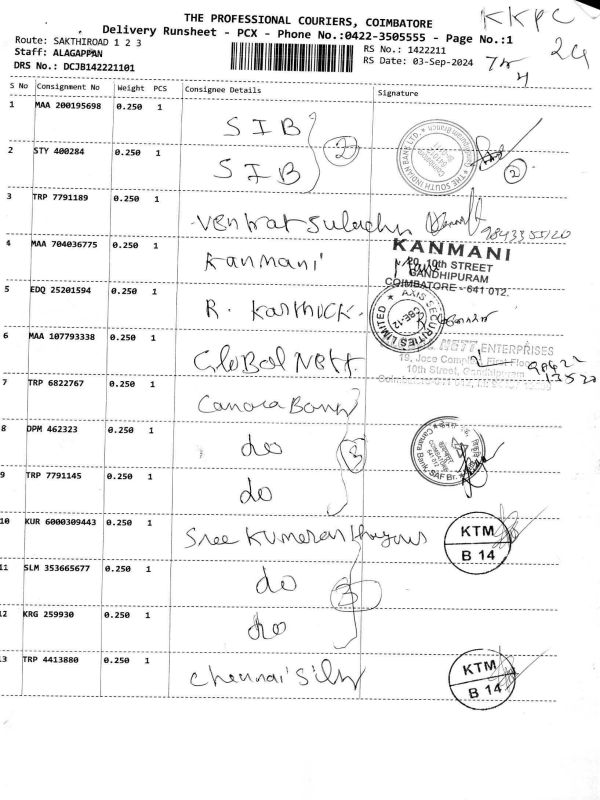 THE PROFESSIONAL COURIERS, COIMBATORE
KKPC
Delivery Runsheet - PCX - Phone No.:0422-3505555 - Page No.:1
Route: SAKTHIROAD 1 2 3
RS No.: 1422211
Staff: ALAGAPPAN
RS Date: 03-Sep-2024
DRS No.: DCJB142221101
S No Consignment No Weight PCS Consignee Details Signature
1 MAA 200195698 0.250 1 SIB
2 STY 400284 0.250 1 SIB
2
THE SOUTH INDIAN BANK LTD.
2
3 TRP 7791189 0.250 1
9843355120
4 MAA 704036775 0.250 1 Kanmani
KANMANI
20, 10th STREET
GANDHIPURAM
COIMBATORE - 641 012.
5 EDQ 25201594 0.250 1 R. Karthick.
AXIS SECURITIES LIMITED
CBE-12
6 MAA 107793338 0.250 1 Global Nett
NETT ENTERPRISES
First Floor
10th Street, Gandhipuram
7 TRP 6822767 0.250 1 Canara Bank
8 DPM 462323 0.250 1 do
3
Canara Bank, SAF Br.
9 TRP 7791145 0.250 1 do
10 KUR 6000309443 0.250 1 Sree Kumaran
KTM
B 14
11 SLM 353665677 0.250 1 do
3
12 KRG 259930 0.250 1 do
13 TRP 4413880 0.250 1 Chennai Silk
KTM
B 14